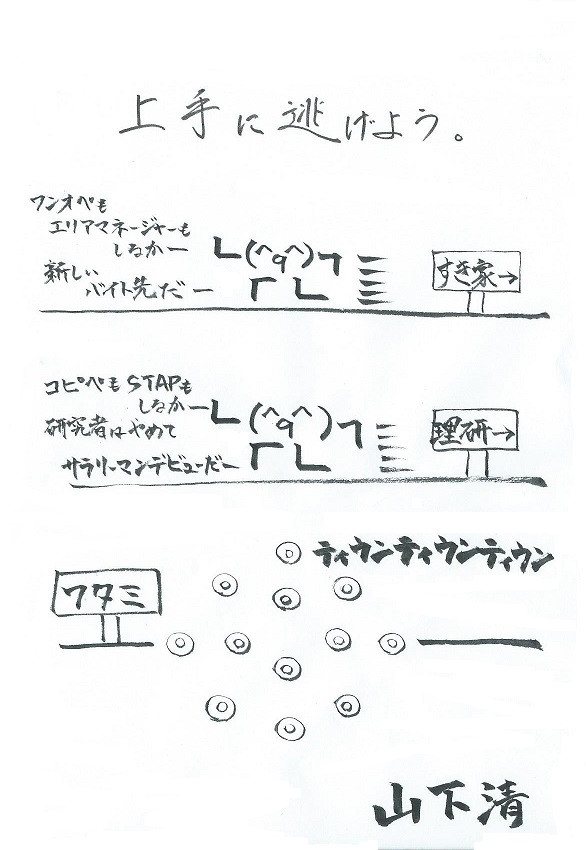 上手に逃げよう。
ワンオペも
エリアマネージャーも
しるかー
新しい
バイト先だー
┗(^q^)┓
┏ ┗
すき家→
コピペもSTAPも
しるかー
研究者はやめて
サラリーマンデビューだー
┗(^q^)┓
┏ ┗
理研→
ティウンティウンティウン
ワタミ
◎
山下清